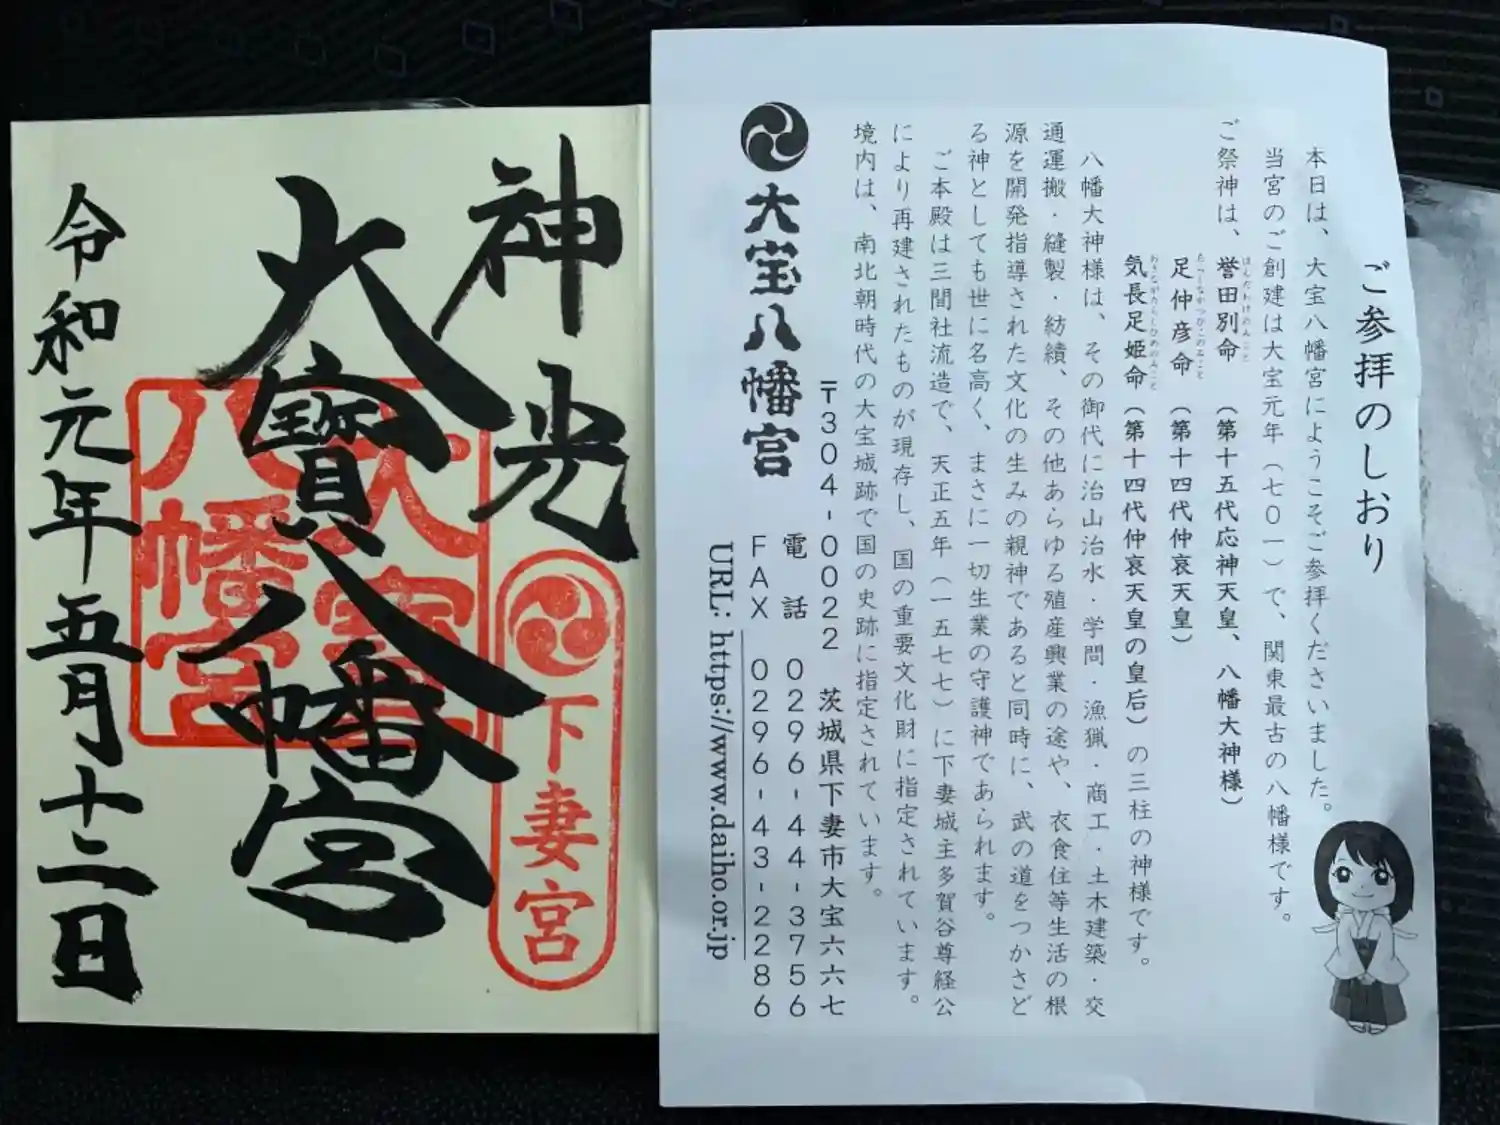 神光
大寳八幡宮
令和元年五月十二日
大寳
八幡宮
下妻宮
ご参拝のしおり
本日は、大宝八幡宮にようこそご参拝くださいました。
当宮のご創建は大宝元年（七〇一）で、関東最古の八幡様です。
ご祭神は、誉田別命（第十五代応神天皇、八幡大神様）
ほんだわけのみこと
足仲彦命（第十四代仲哀天皇）
たらしなかつひこのみこと
気長足姫命（第十四代仲哀天皇の皇后）の三柱の神様です。
おきながたらしひめのみこと
八幡大神様は、その御代に治山治水・学問・漁猟・商工・土木建築・交
通運搬・縫製・紡績、その他あらゆる殖産興業の途や、衣食住等生活の根
源を開発指導された文化の生みの親神であると同時に、武の道をつかさど
る神としても世に名高く、まさに一切生業の守護神であられます。
ご本殿は三間社流造で、天正五年（一五七七）に下妻城主多賀谷尊経公
により再建されたものが現存し、国の重要文化財に指定されています。
境内は、南北朝時代の大宝城跡で国の史跡に指定されています。
大宝八幡宮
〒304-0022 茨城県下妻市大宝六六七
電話 0296-44-3756
FAX 0296-43-2286
URL: https://www.daiho.or.jp